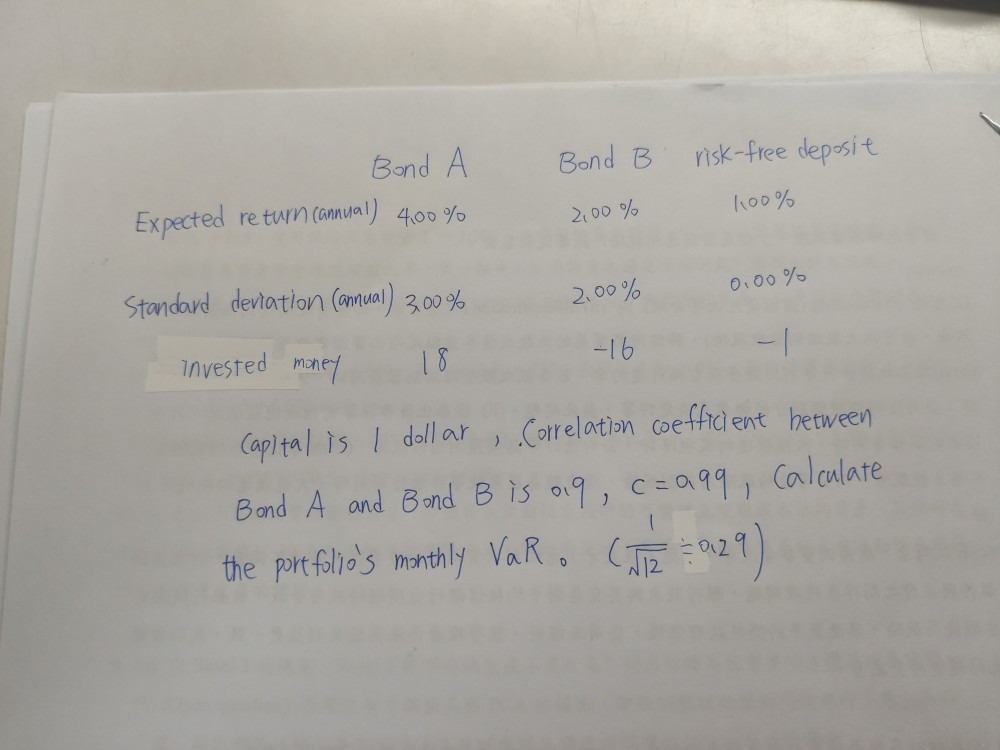 Bond A Bond B risk-free deposit
Expected return (annual) 4.00% 2.00% 1.00%
Standard deviation (annual) 3.00% 2.00% 0.00%
invested money 18 -16 -1
Capital is 1 dollar, Correlation coefficient between
Bond A and Bond B is 0.9, c=0.99, Calculate
the portfolio's monthly VaR。 (1/√12 ≒0.29)